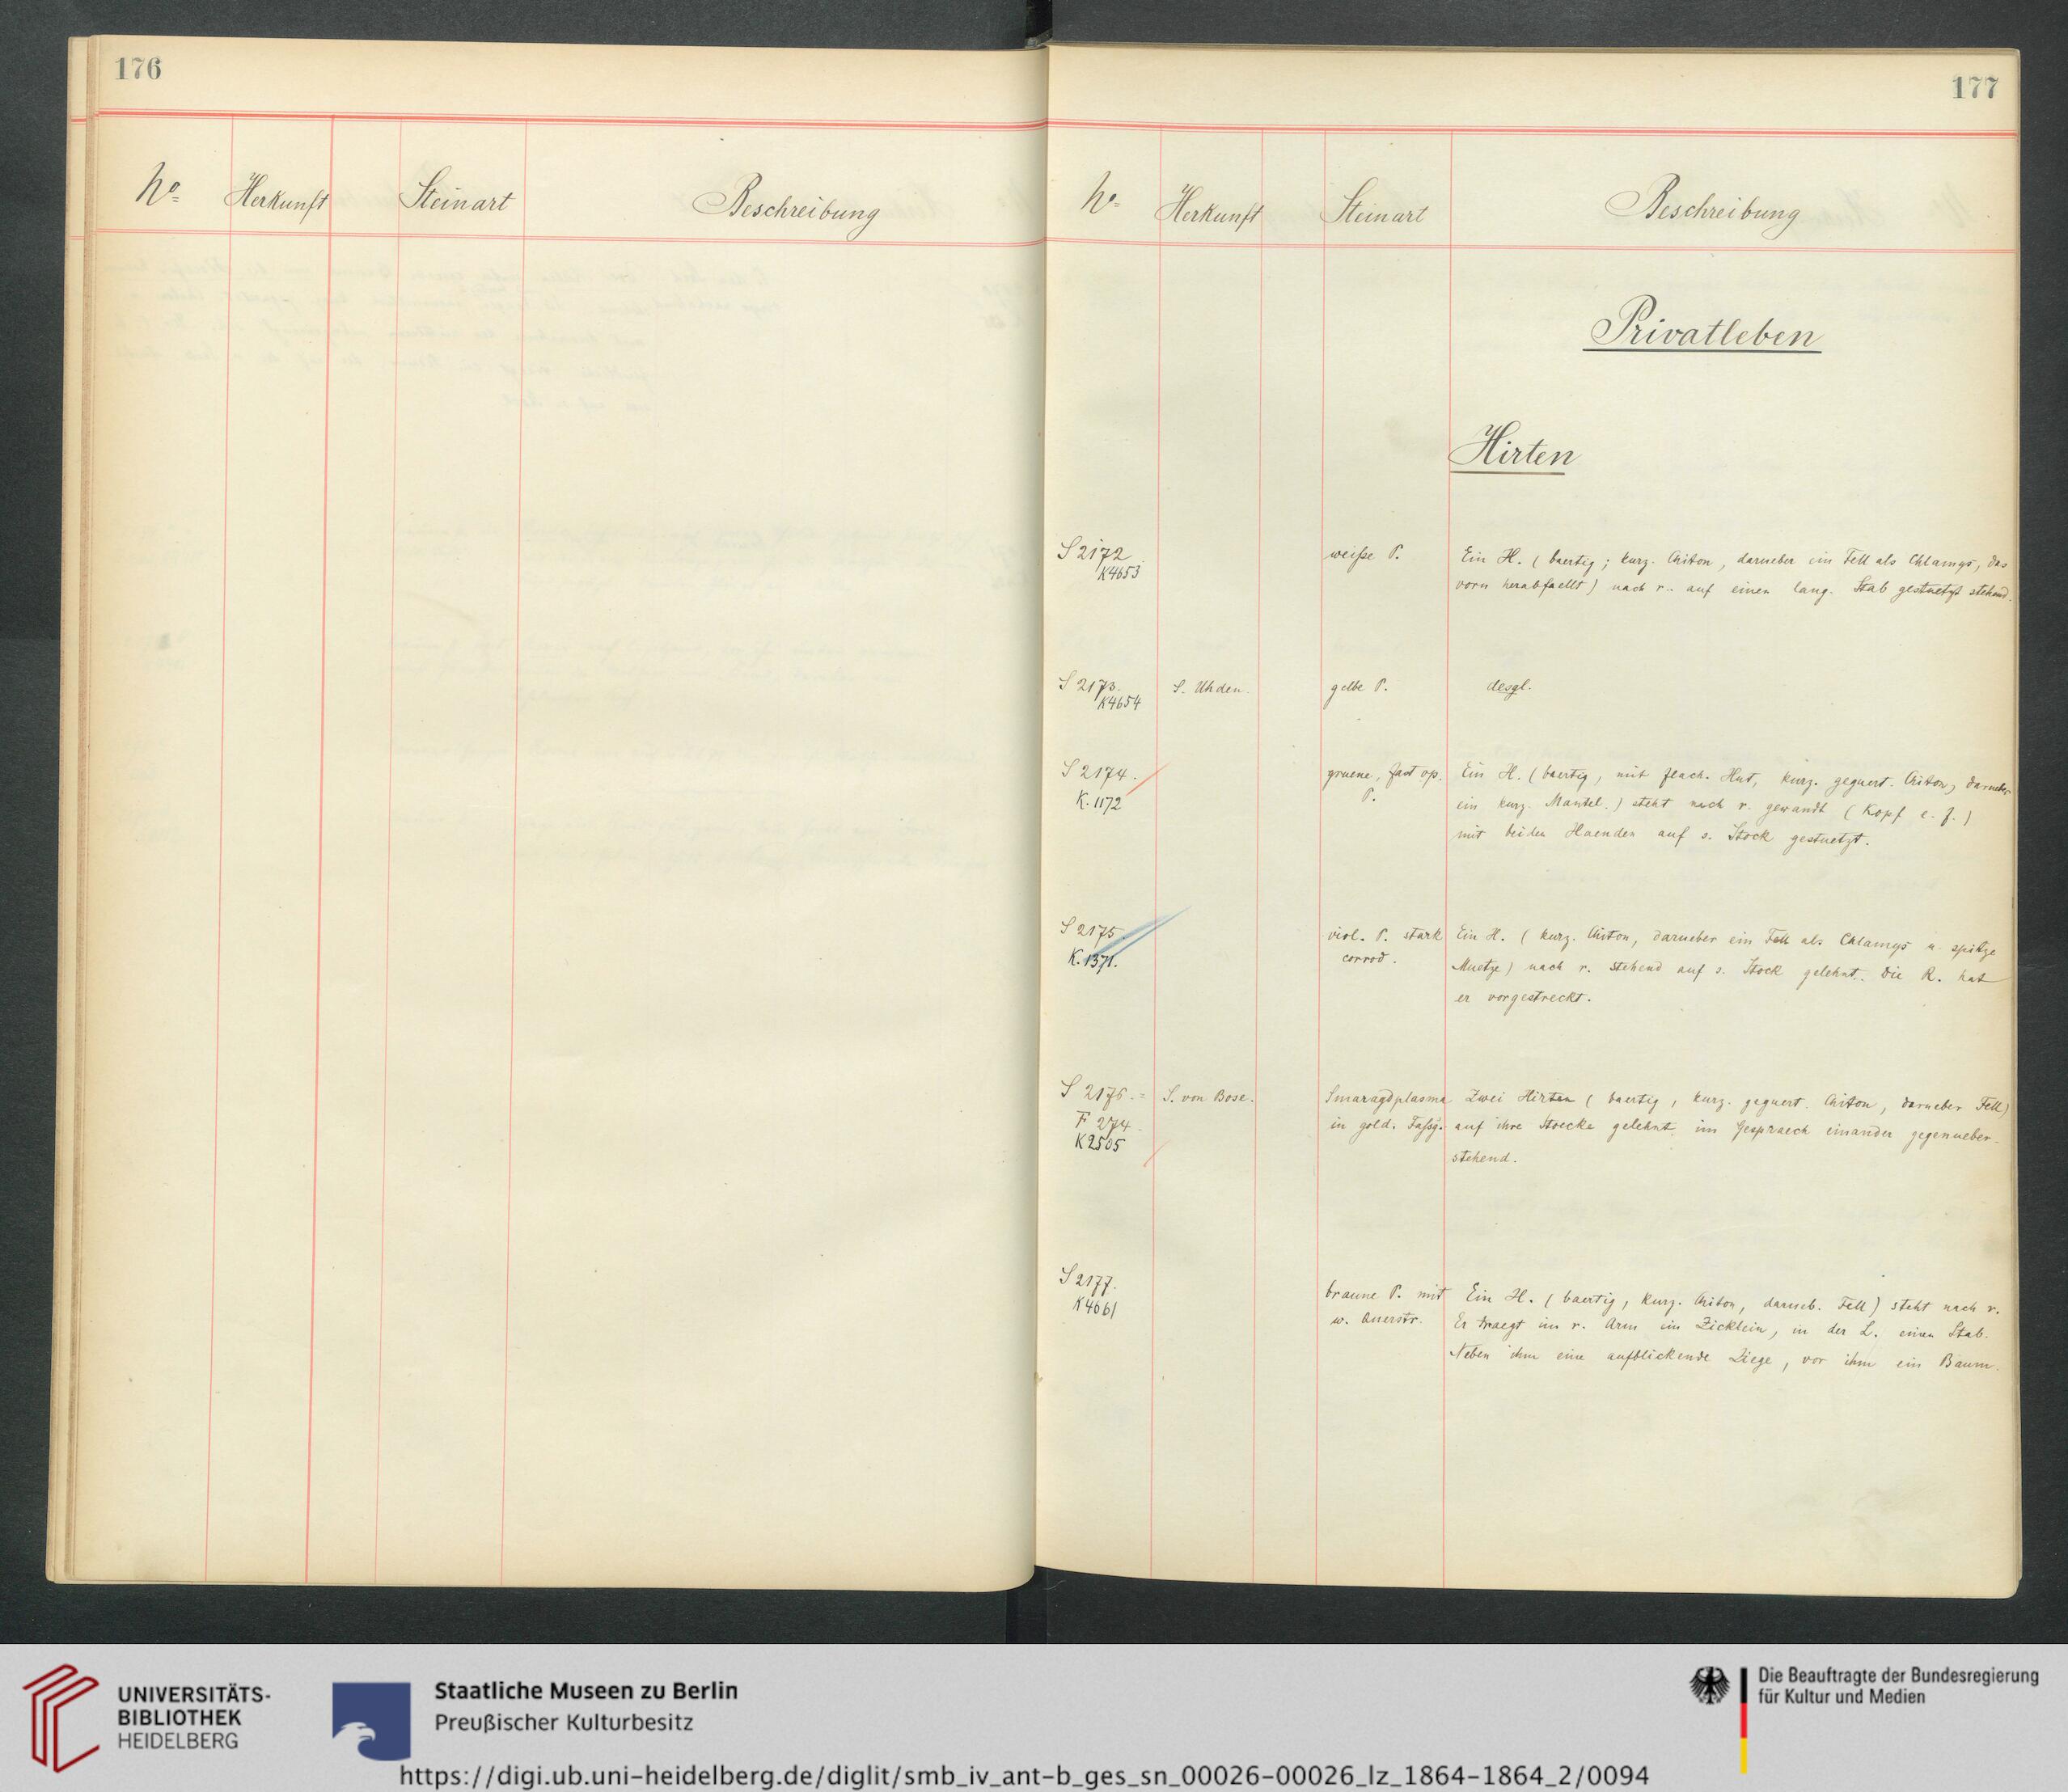 176
No Herkunft Steinart Beschreibung
177
No Herkunft Steinart Beschreibung
Privatleben
Hirten
S 2172
K4653
weiße P.
Ein H. (baertig; kurz. Chiton, darueber ein Fell als Chlamys, das
vorn herabfaellt) nach r. auf einen lang. Stab gestuetzt stehend.
S 2173.
K4654
S. Uhden.
gelbe P.
desgl.
S 2174.
K. 1172
gruene, fast op.
P.
Ein H. (baertig, mit flach. Hut, kurz. geguert. Chiton, darueber
ein kurz. Mantel.) steht nach r. gewandt (Kopf e. f.)
mit beiden Haenden auf s. Stock gestuetzt.
S 2175
K. 1371.
viol. P. stark
corrod.
Ein H. (kurz. Chiton, darueber ein Fell als Chlamys u. spitze
Muetze) nach r. stehend auf s. Stock gelehnt. Die R. hat
er vorgestreckt.
S 2176. =
F 274
K2505
S. von Bose.
Smaragdplasma
in gold. Faßg.
Zwei Hirten (baertig, kurz. geguert. Chiton, darueber Fell)
auf ihre Stoecke gelehnt im Gespraech einander gegenueber-
stehend.
S 2177.
K4661
braune P. mit
w. Querstr.
Ein H. (baertig, kurz. Chiton, darueb. Fell) steht nach r.
Er traegt im r. Arm ein Zicklein, in der L. einen Stab.
Neben ihm eine aufblickende Ziege, vor ihm ein Baum.
UNIVERSITÄTS-
BIBLIOTHEK
HEIDELBERG
Staatliche Museen zu Berlin
Preußischer Kulturbesitz
Die Beauftragte der Bundesregierung
für Kultur und Medien
https://digi.ub.uni-heidelberg.de/diglit/smb_iv_ant-b_ges_sn_00026-00026_lz_1864-1864_2/0094